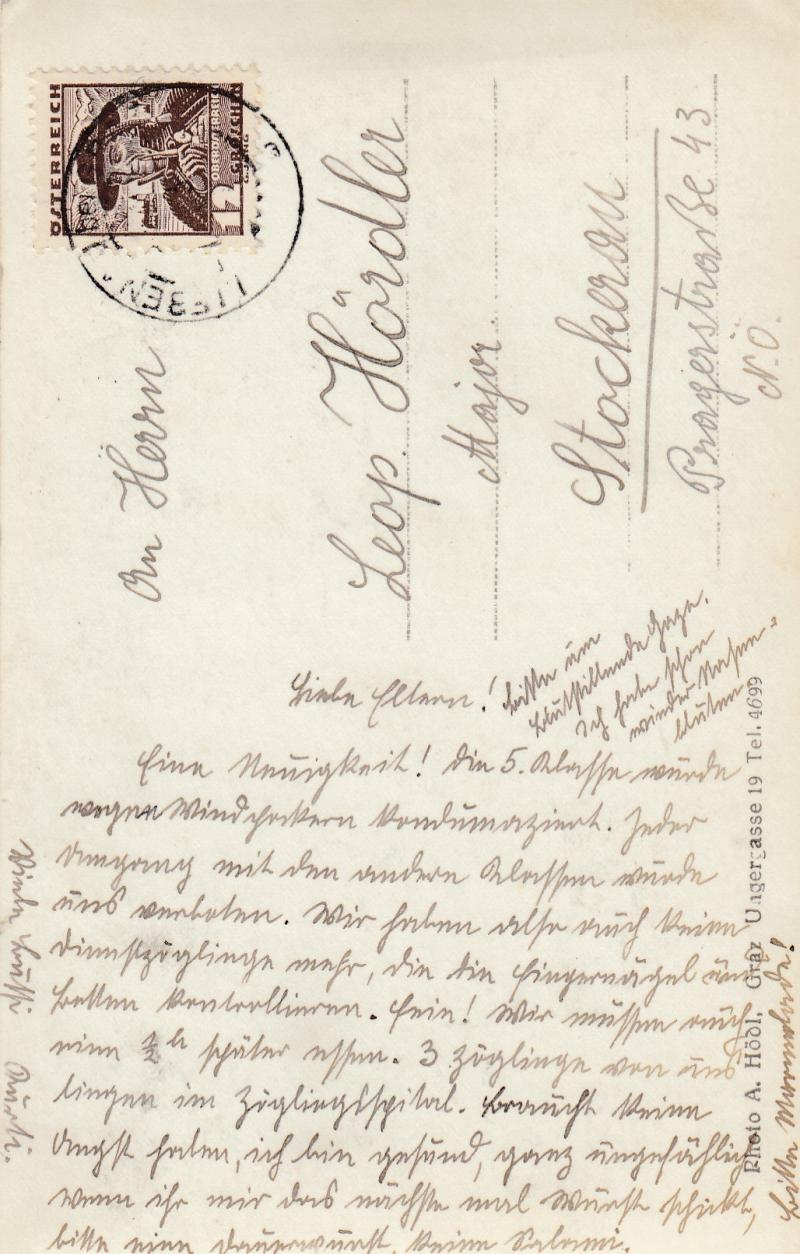 ÖSTERREICH
12 GROSCHEN
LIEBEN
An Herrn
Leop. Hördler
Major
Stockerau
Pragerstraße 43
N. Ö.
Liebe Eltern!
Eine Neuigkeit! Die 5. Klasse wurde
wegen Windpockern kondumaziert. Jeder
Umgang mit den andern Klassen wurde
uns verboten. Wir haben also auch keine
Dienstzöglinge mehr, die die Fingernägel und
Betten kontrollieren. Fein! Wir müssen auch
eine ½ h später essen. 3 Zöglinge von uns
liegen im Zöglingsspital. Braucht keine
Angst haben, ich bin gesund, ganz ungefährlich
wenn ihr mir das nächste mal Wurst schickt,
bitte eine Dauerwurst, keine Salami.
Bitte um
blutstillende Gaze.
Ich habe schon
wieder Nasen-
bluten.
Bitte Marmelade!
Viele Bussi
Photo A. Hödl, Graz Ungergasse 19 Tel. 4699